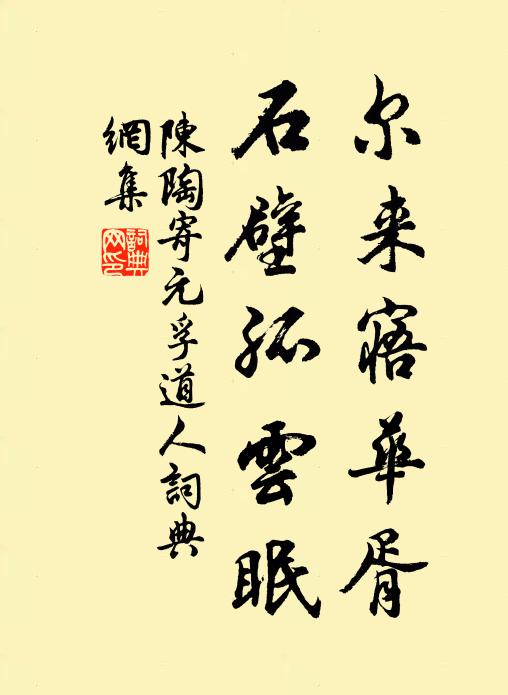 尔来寤华胥
石壁孤雲眠
陳陶寄元孚道人詞典
網集
詞典
网印